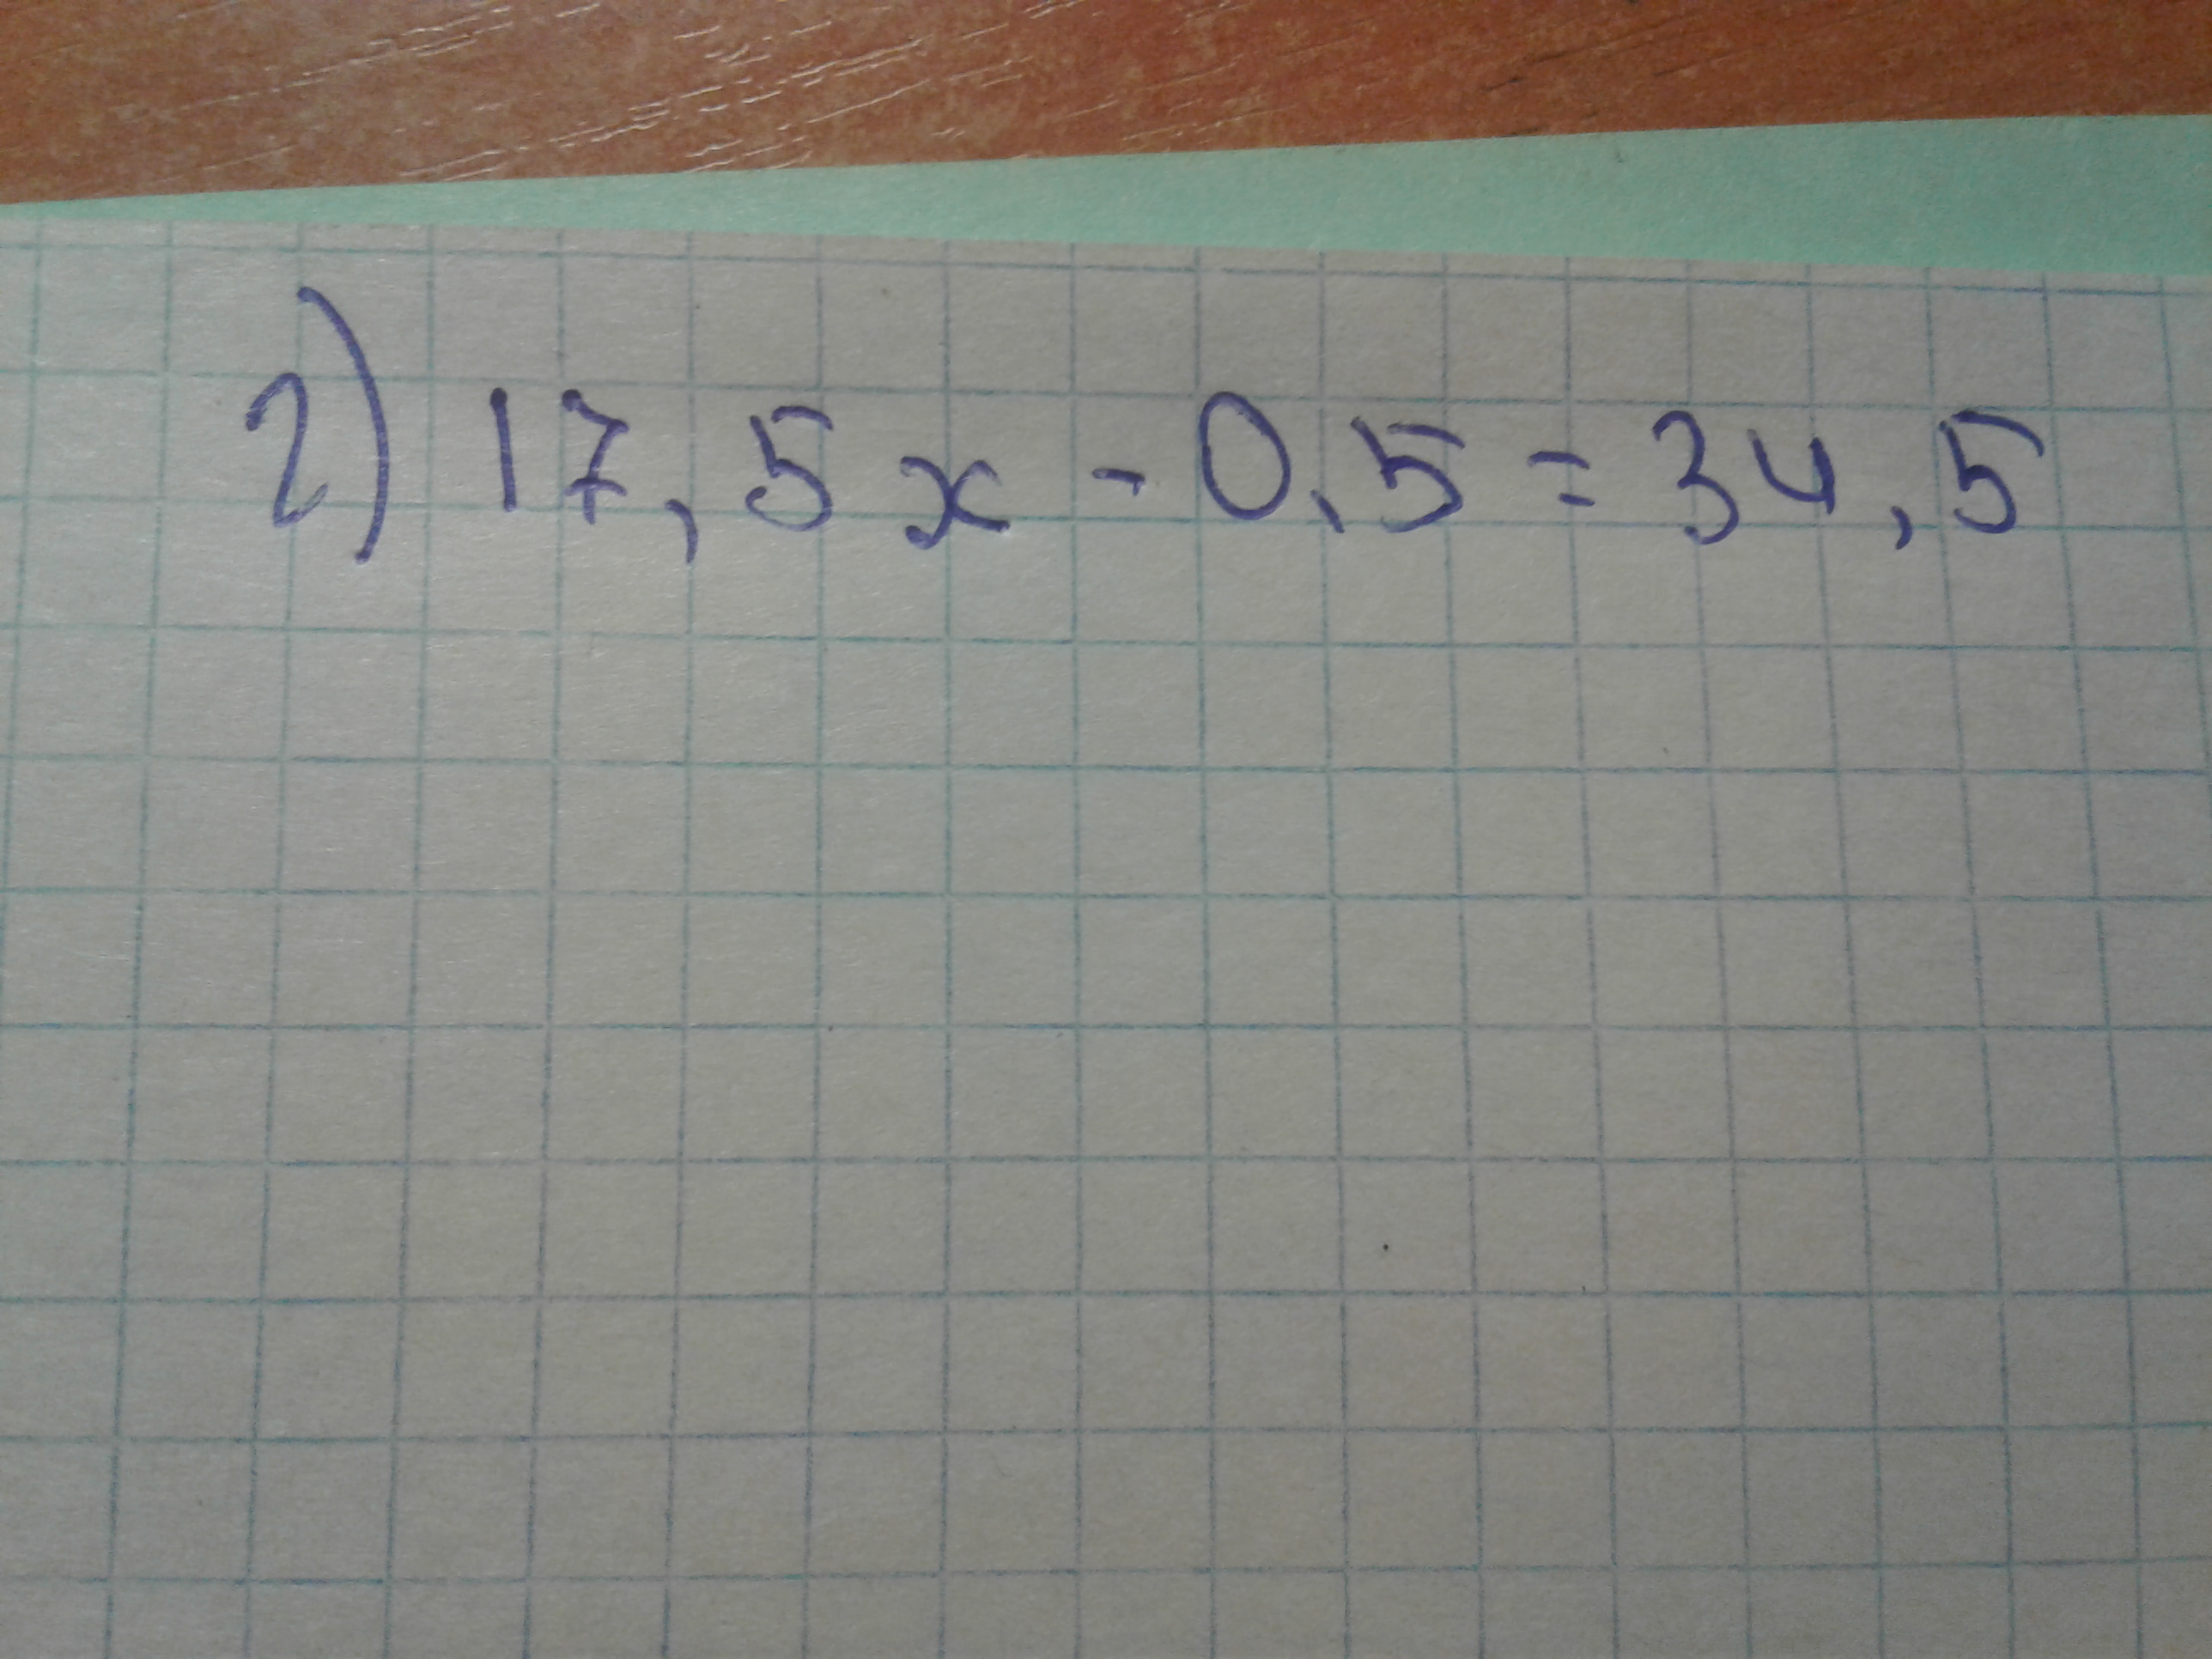 г) 17,5x - 0,5 = 34,5